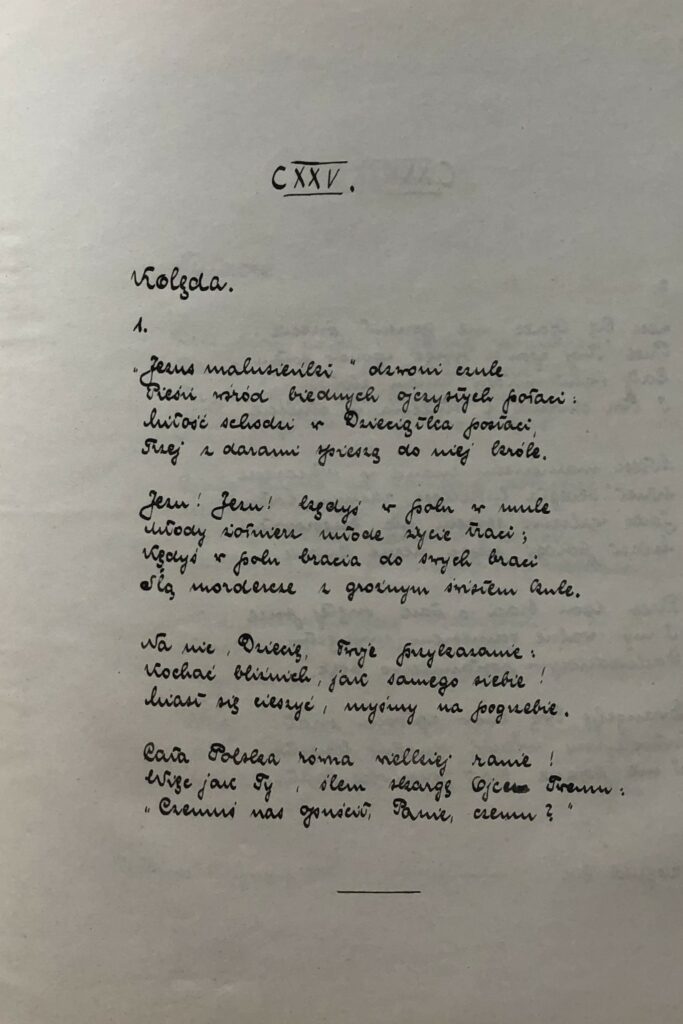 CXXV.
Kolęda.
1.
„Jezus malusieńki" dzwoni czule
Pieśń wśród biednych ojczystych połaci:
Miłość schodzi w Dzieciątka postaci,
Trzej z darami spieszą do niej króle.
Jezu! Jezu! kędyś w polu w mule
Młody żołnierz młode życie traci;
Kędyś w polu bracia do swych braci
Ślą mordercze z groźnym świstem kule.
Na nic, Dziecię, Twoje przykazanie:
Kochać bliźnich, jak samego siebie!
Miast się cieszyć, myśmy na pogrzebie.
Cała Polska równa wielkiej ranie!
Więc jak Ty, ślem skargę Ojcu Twemu:
„Czemuś nas opuścił, Panie, czemu?"